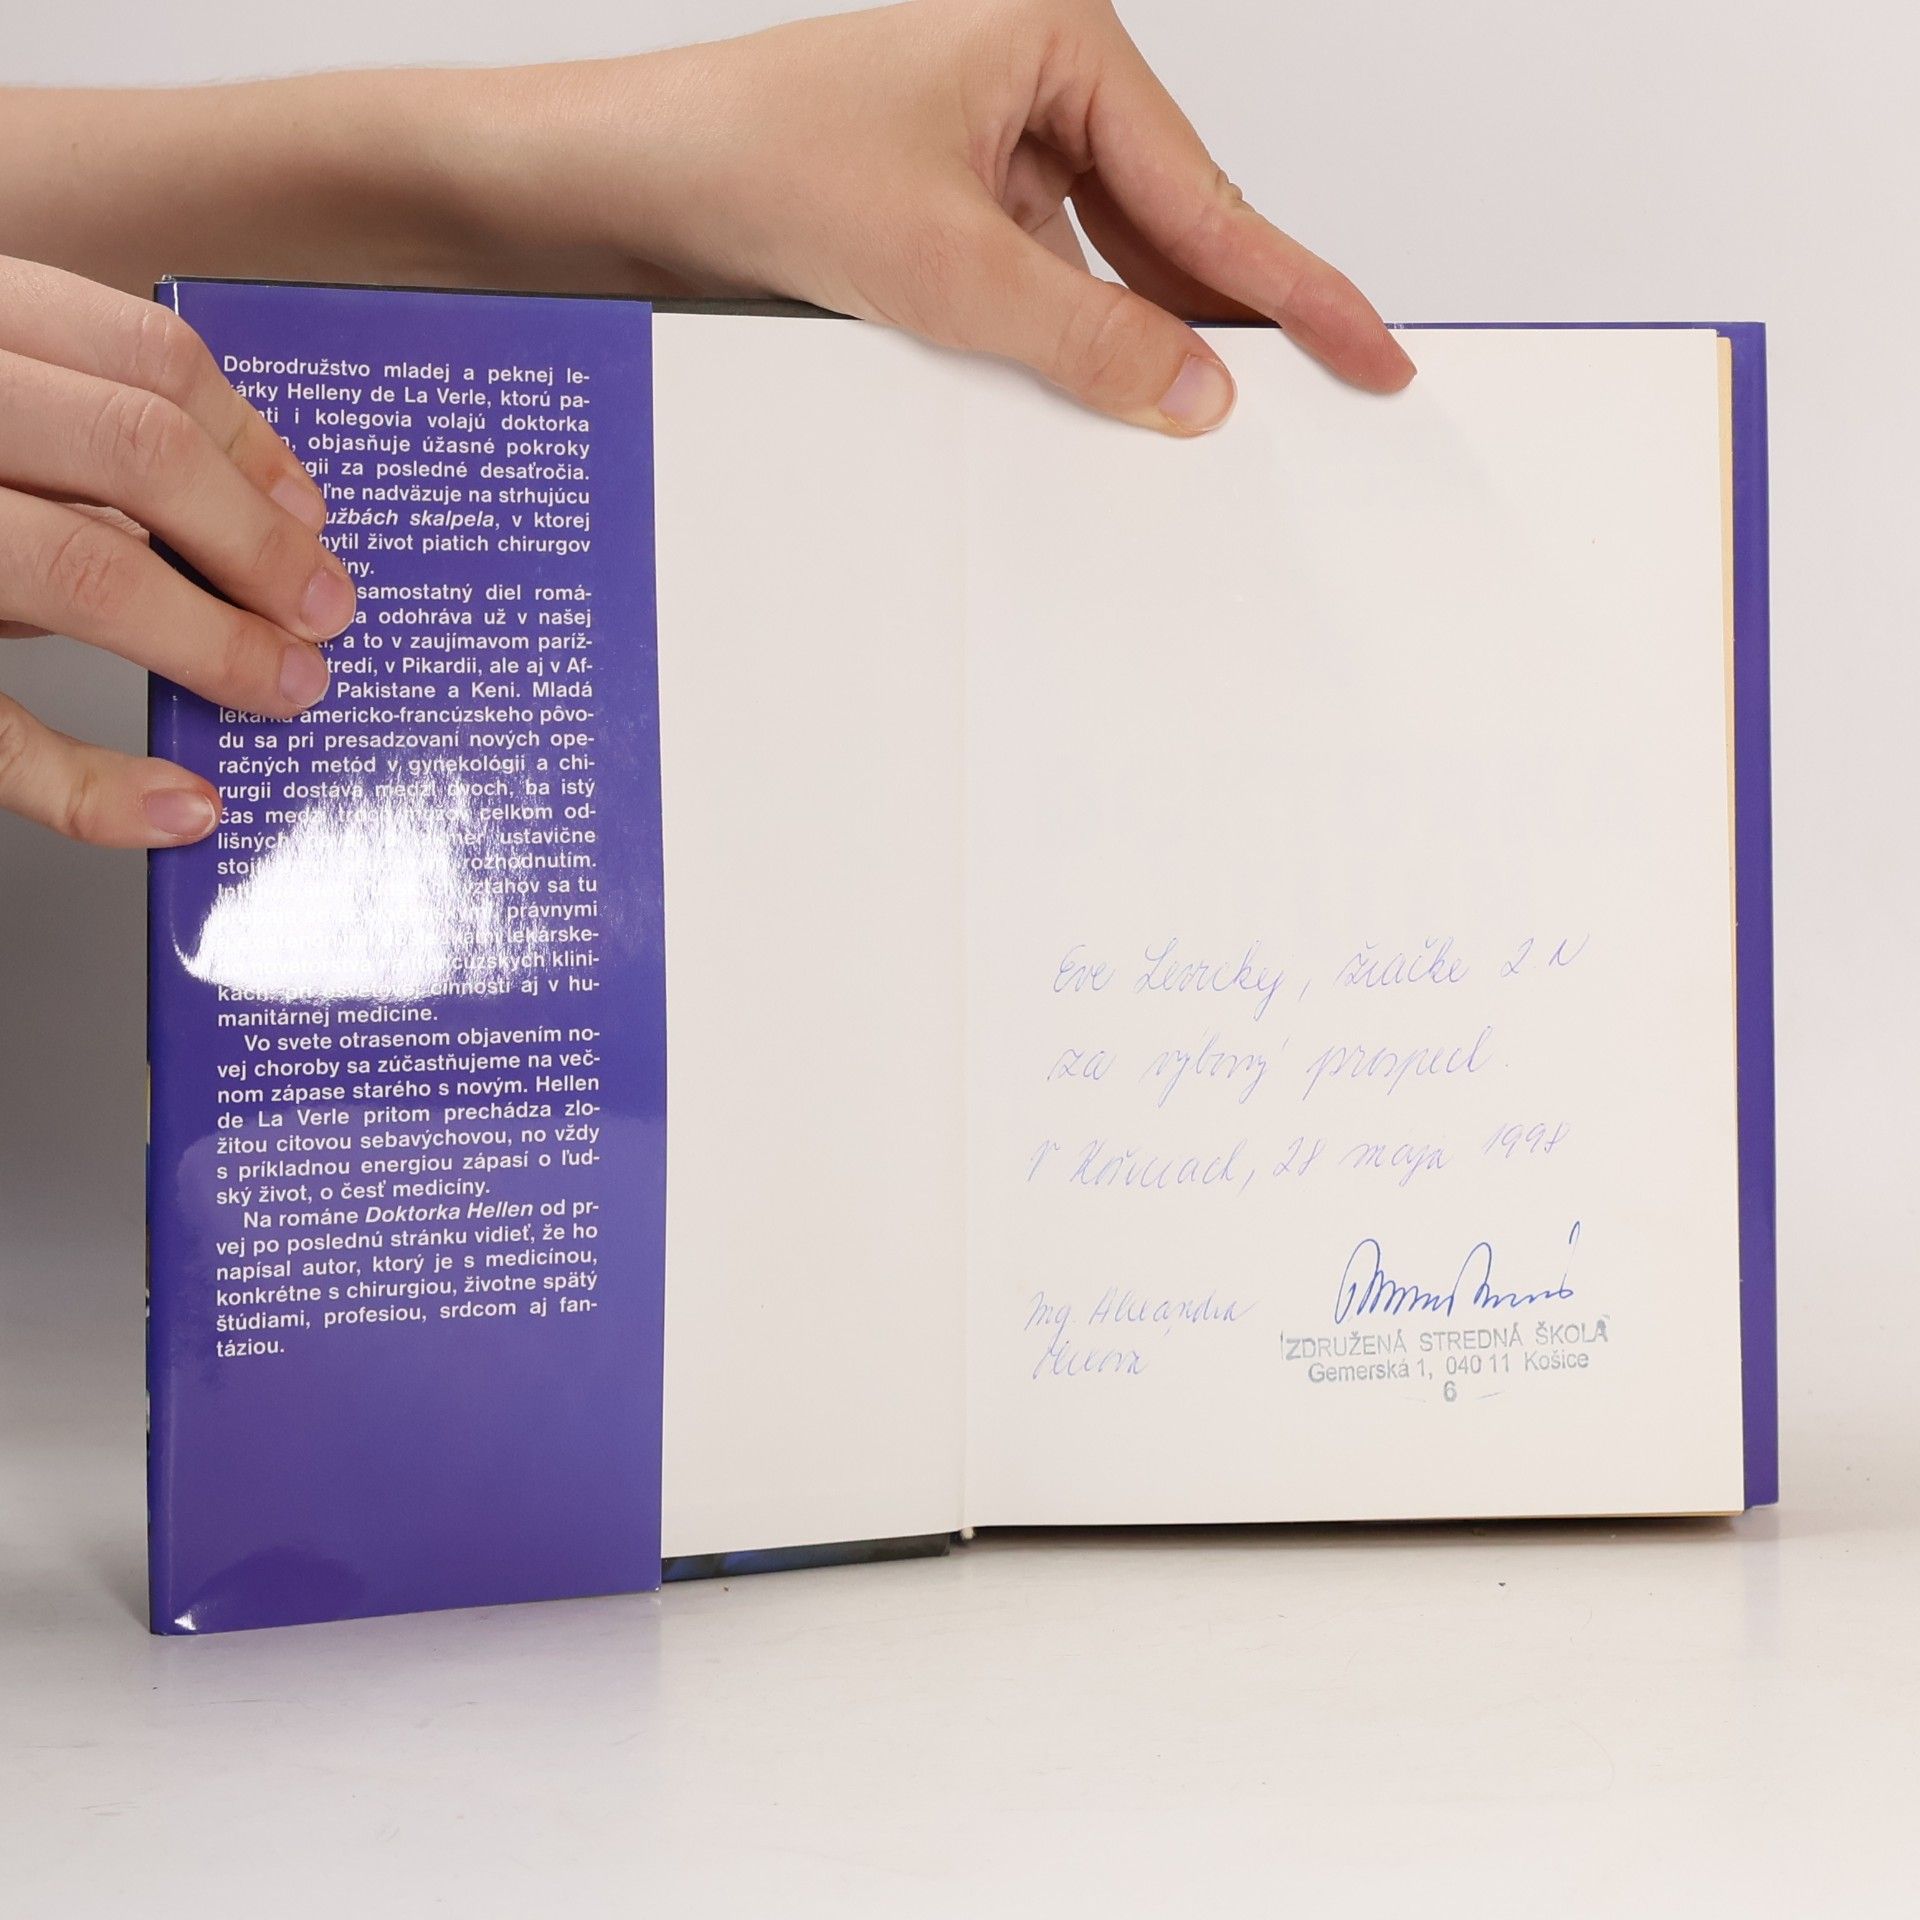 Dobrodružstvo mladej a peknej le-
árky Helleny de La Verle, ktorú pa-
ti i kolegovia volajú doktorka
n, objasňuje úžasné pokroky
gii za posledné desaťročia.
ľne nadväzuje na strhujúcu
užbách skalpela, v ktorej
hytil život piatich chirurgov
iny.
samostatný diel romá-
a odohráva už v našej
, a to v zaujímavom paríž-
tredí, v Pikardii, ale aj v Af-
Pakistane a Keni. Mladá
lekárka americko-francúzskeho pôvo-
du sa pri presadzovaní nových ope-
račných metód v gynekológii a chi-
rurgii dostáva medzi dvoch, ba istý
čas medzi troch mužov celkom od-
lišných ustavične
stojí rozhodnutím.
vzťahov sa tu
právnymi
lekárske-
ho novátorstva na francúzskych klini-
kách, pri osvetovej činnosti aj v hu-
manitárnej medicíne.
Vo svete otrasenom objavením no-
vej choroby sa zúčastňujeme na več-
nom zápase starého s novým. Hellen
de La Verle pritom prechádza zlo-
žitou citovou sebavýchovou, no vždy
s príkladnou energiou zápasí o ľud-
ský život, o česť medicíny.
Na románe Doktorka Hellen od pr-
vej po poslednú stránku vidieť, že ho
napísal autor, ktorý je s medicínou,
konkrétne s chirurgiou, životne spätý
štúdiami, profesiou, srdcom aj fan-
táziou.
Eve Levickej, žiačke 2 N
za výborný prospech
V Košiciach, 28 mája 1998
Ing. Alexandra
ZDRUŽENÁ STREDNÁ ŠKOLA
Gemerská 1, 040 11 Košice
6